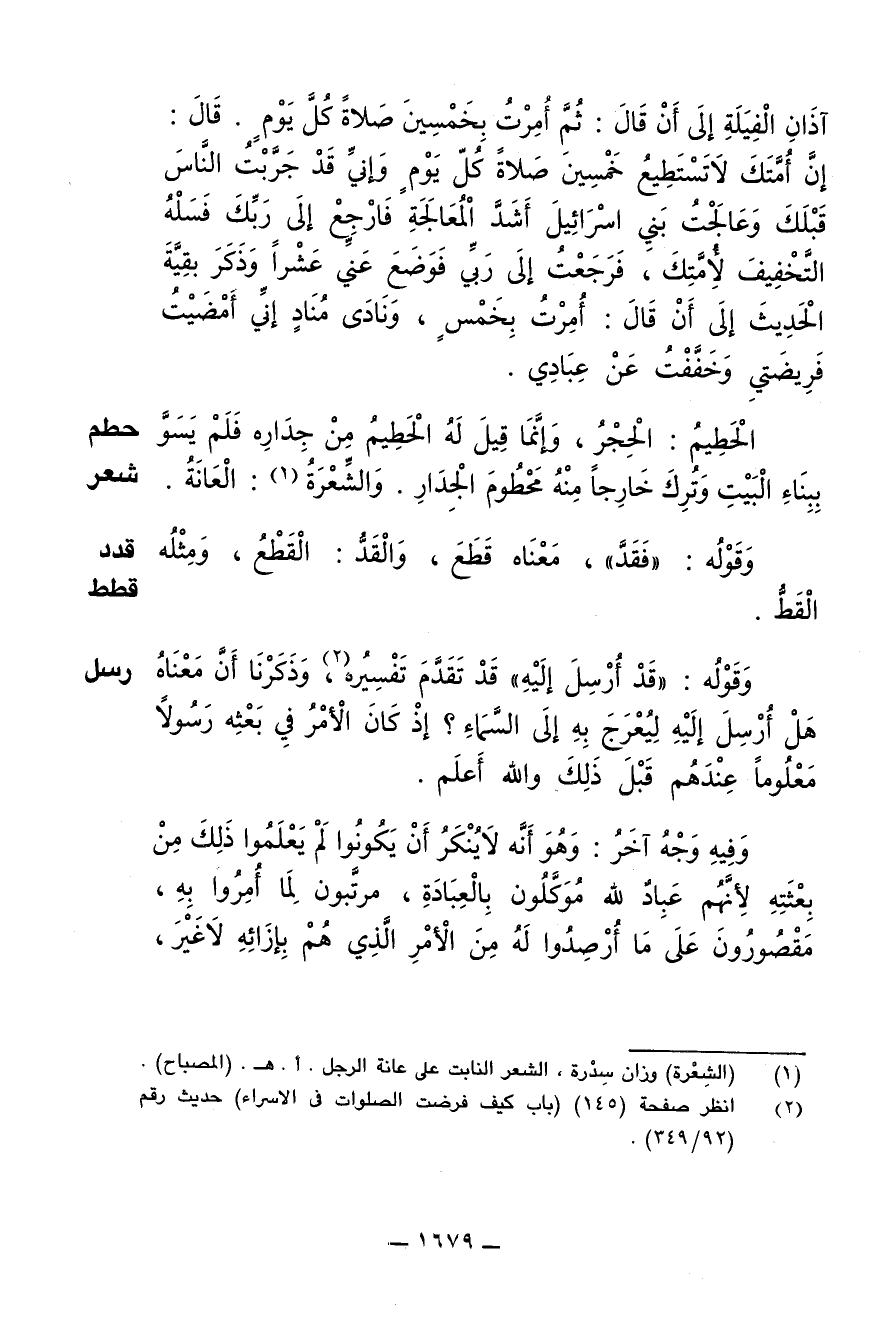 آذَانِ الْفِيَلَةِ إِلَى أَنْ قَالَ : ثُمَّ أُمِرْتُ بِخَمْسِينَ صَلاةً كُلَّ يَوْمٍ . قَالَ :
إِنَّ أُمَّتَكَ لاَتَسْتَطِيعُ خَمْسِينَ صَلاةً كُلّ يَوْمٍ وَإِنيِّ قَدْ جَرَّبْتُ النَّاسَ
قَبْلَكَ وَعَالَجْتُ بَنِي اسْرَائِيلَ أَشَدَّ الْمُعَالَجَةِ فَارْجِعْ إِلَى رَبِّكَ فَسَلْهُ
التَّخْفِيفَ لأُمَّتِكَ ، فَرَجَعْتُ إِلَى رَبِّي فَوَضَعَ عَنيِّ عَشْراً وَذَكَرَ بقِيَّةَ
الْحَدِيثَ إِلَى أَنْ قَالَ : أُمِرْتُ بِخَمْسٍ ، وَنَادَى مُنَادٍ إِنيِّ أَمْضَيْتُ
فَرِيضَتيِ وَخَفَّفْتُ عَنْ عِبَادِي .
الْحَطِيمُ : الْحِجْرُ ، وَإِنَّمَا قِيلَ لَهُ الْحَطِيمُ مِنْ جِدَارِه فَلَمْ يَسَوَّ حطم
بِبِنَاءِ الْبَيْتِ وَتُرِكَ خَارِجاً مِنْهُ مَحْطُومَ الْجِدَارِ . وَالشِّعْرَةُ (١) : الْعَانَةُ . شعر
وَقَوْلُه : «فَقَدَّ» ، مَعْنَاه قَطَعَ ، وَالْقَدُّ : الْقَطْعُ ، وَمِثْلُه قدد
الْقَطُّ . قطط
وَقَوْلُه : «قَدْ أُرْسِلَ إِلَيْهِ» قَدْ تَقَدَّمَ تَفْسِيرُه(٢)، وَذَكَرْنَا أَنَّ مَعْنَاهُ رسل
هَلْ أُرْسِلَ إِلَيْهِ لِيُعْرَجَ بِهِ إِلَى السَّمَاءِ ؟ إِذْ كَانَ الْأمْرُ فِي بَعْثِه رَسُولاً
مَعْلُوماً عِنْدَهُم قَبْلَ ذَلِكَ والله أَعلَم .
وَفِيهِ وَجْهُ آخَرُ : وَهُوَ أَنَّه لاَيُنْكَرُ أَنْ يَكُونُوا لَمْ يَعْلَمُوا ذَلِكَ مِنْ
بِعْثَتِهِ لِأنَّهُم عَبِادٌ لله مُوَكَّلُون بِالْعِبَادَةِ ، مرتَّبون لِمَا أُمِرُوا بِهِ ،
مَقْصُورُونَ عَلَى مَا أُرْصِدُوا لَهُ مِنَ الْأمْرِ الَّذِي هُمْ بِإِزَائِهِ لاَغَيْرَ ،
(١) (الشِعْرة) وزان سِدْرة ، الشعر النابت على عانة الرجل . أ . هـ . (المصباح) .
(٢) انظر صفحة (١٤٥) (باب كيف فرضت الصلوات فى الاسراء) حديث رقم
(٣٤٩/٩٢) .
— ١٦٧٩ —